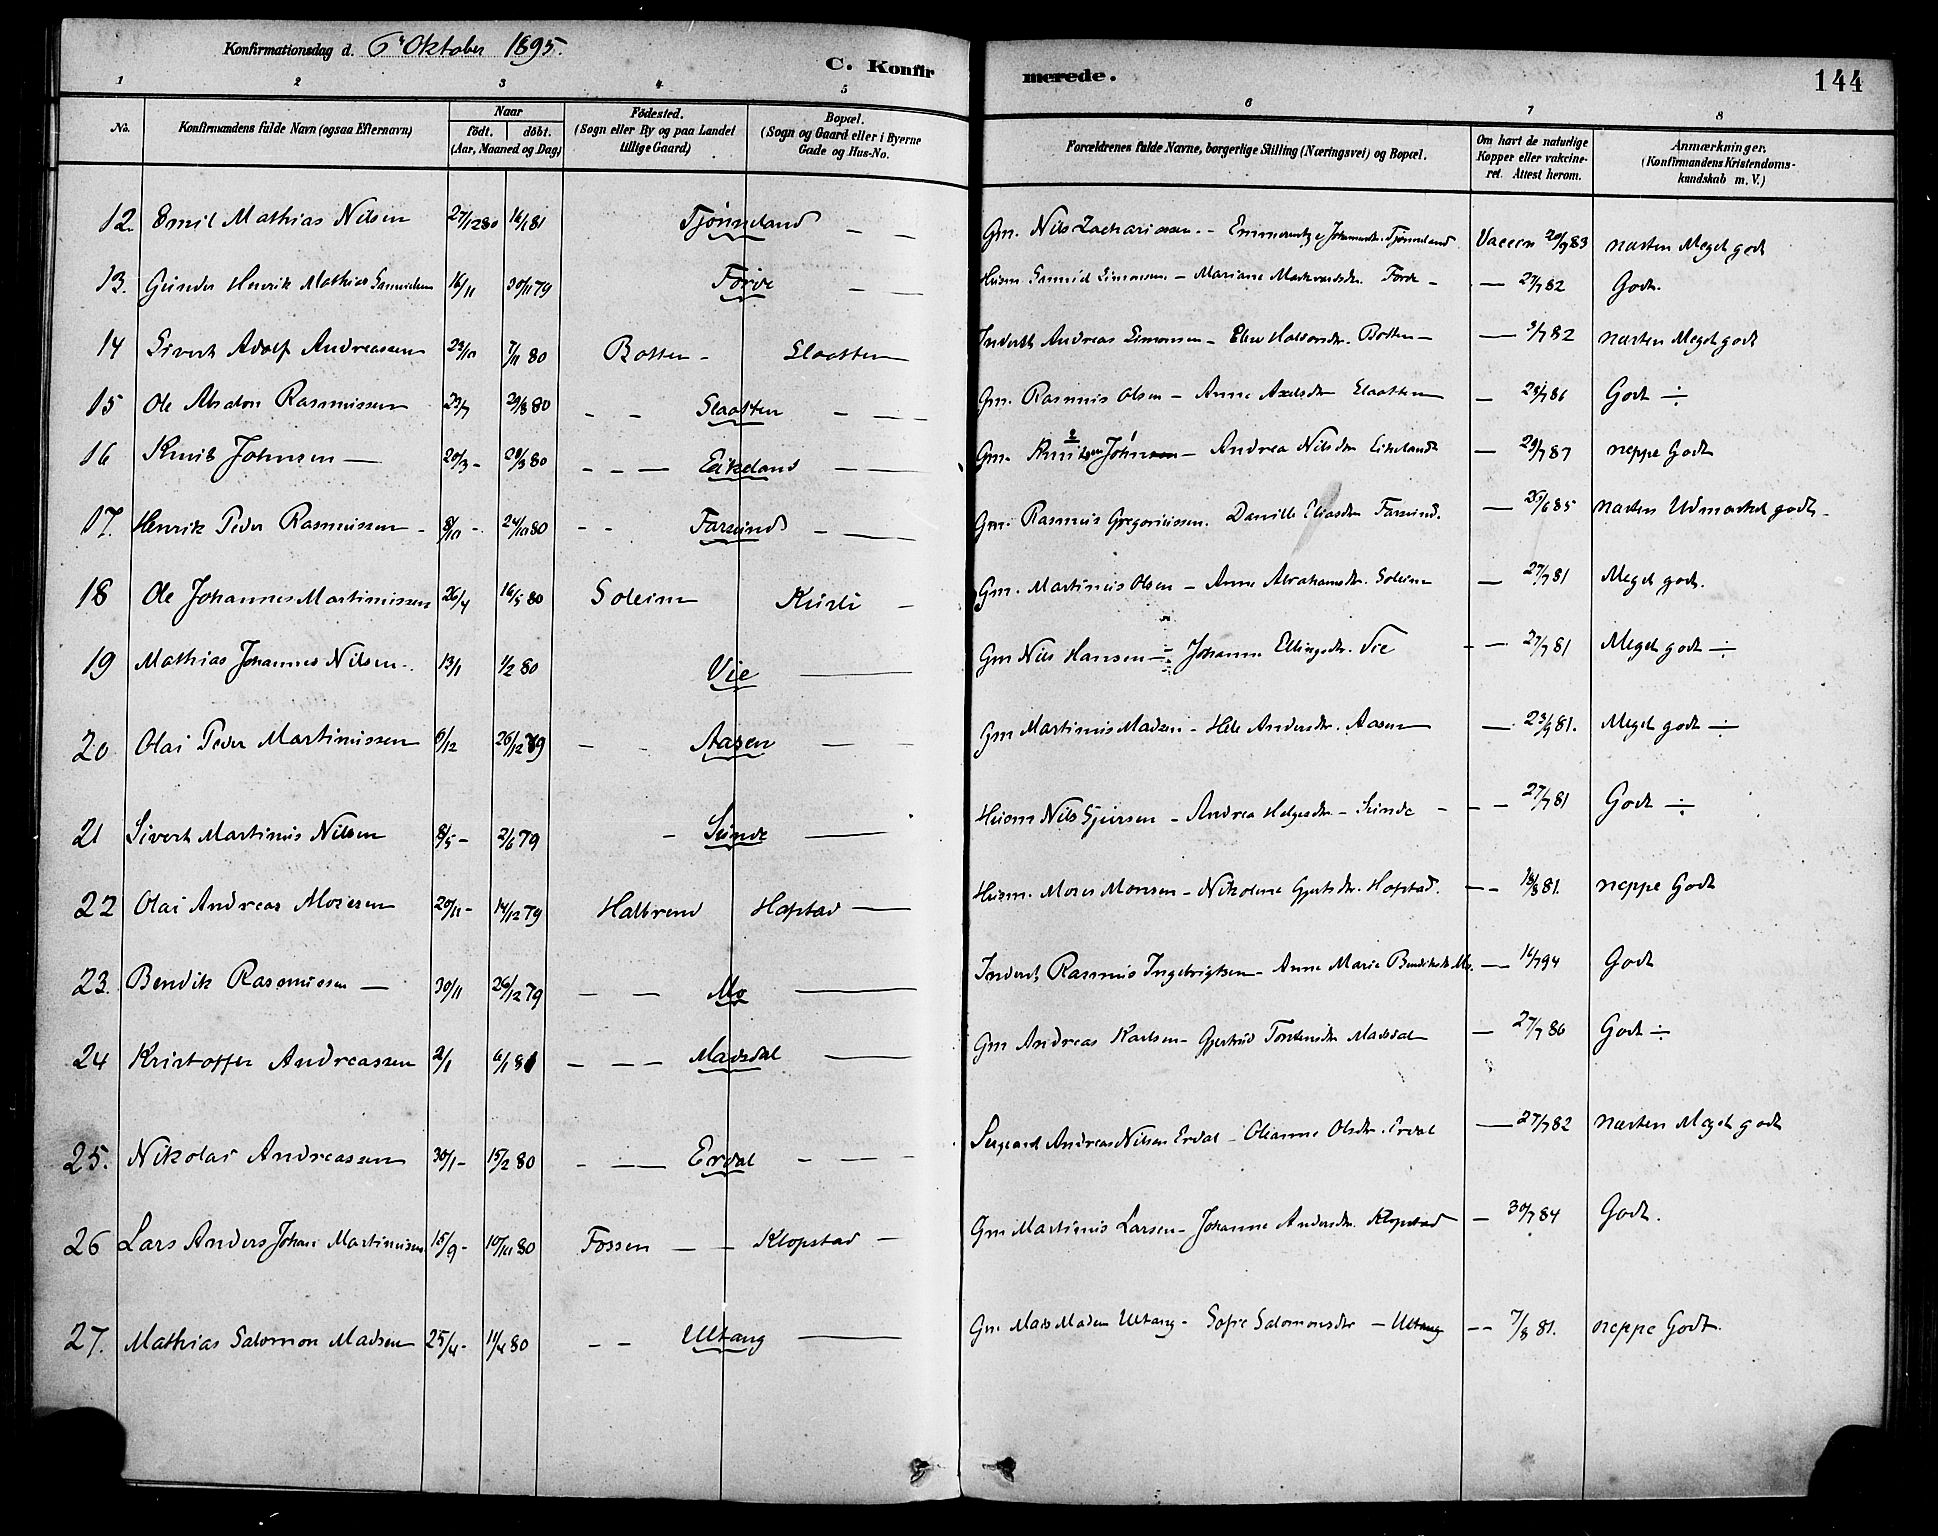 Konfirmationsdag d. 6te Oktober 1895.
C. Konfirmerede.
144
1 2 3 4 5 6 7 8
No. Konfirmandens fulde Navn (ogsaa Efternavn) Naar født. døbt. (Aar, Maaned og Dag) Fødested. (Sogn eller By og paa Landet tillige Gaard) Bopæl. (Sogn og Gaard eller i Byerne Gade og Hus-No. Forældrenes fulde Navne, borgerlige Stilling (Næringsvei) og Bopæl. Om havt de naturlige Kopper eller vakcineret. Attest herom. Anmærkninger. (Konfirmandens Kristendomskundskab m. V.)
12. Emil Mathias Nilsen 27/12 80 16/1 81 Tjønneland — — Gm. Nils Zachariassen. - Tjønneland Vaccen 20/9 83 næsten Meget godt
13. Gunder Henrik Mathias Samuelsen 16/11 30/11 79 Førde — — Husm Samuel Simonsen - Mariane Markvardsdtr. Førde - — 27/7 82 Godt.
14 Sivert Adolf Andreassen 23/10 7/11 80 Botten - Slaatten Inderst Andreas Simonsen - Botten — — 3/7 82 næsten Meget godt
15 Ole Absalon Rasmussen 22/7 29/8 80 — — Slaatten — — Gm. Rasmus Olsen - Anne Axelsdtr Slaatten — 28/7 86 Godt ÷
16 Knut Johnsen — 20/3 - 29/3 80 — — — Eikeland — — Gm. Andrea Nilsdtr Eikeland — 29/7 87 neppe Godt
17. Henrik Peder Rasmussen - 8/10 - 24/10 80 - - Farsund - — Gm. Rasmus Gregoriussen. Danille Eliasdtr Farsund. — 26/6 85 næsten Udmærket godt -
18 Ole Johannes Martinussen 26/4 16/5 80 Soleim Kusli - Gm. Martinus Olsen - Anne Abrahamsdtr. Soleim — 27/7 81 Meget godt.
19 Mathias Johannes Nilsen. 13/1 1/2 80 Vie — Gm Nils Hansen - Johanne Ellingsdtr. Vie - — 27/7 81 Meget godt ÷
20 Olai Peder Martinussen 6/12 26/12 79 - - Aasen — - Gm Martinus Madsen - Andersdtr. Aasen — 23/9 81. Meget godt ÷
21 Sivert Martinus Nilsen 8/5 - 2/6 79 - Sunde — Husm Nils Sjursen - Andrea Helgesdtr. - Sunde - - - 27/7 81 Godt ÷
22 Olai Andreas Mosesen 20/11 - 14/12 79 Halbrend Hafstad — Husm. Moses Monsen - Nikoline Gjertsdtr. Hafstad. - - 18/8 81. neppe Godt
23. Bendik Rasmussen — 30/11 26/12 79 — — Mo — Inderst Rasmus Ingebrigtsen - Anne Marie Bendiksdtr. Mo. — 16/7 94 Godt
24 Kristoffer Andreassen 2/1 6/1 81 - — — Madsdal — Gm Andreas Karlsen - Gjertrud Torstensdtr Madsdal — 27/7 86 Godt ÷
25. Nikolai Andreassen 30/1 - 15/2 80 - — — Erdal - — — Sergeant Andreas Nilsen Erdal - Oleanne Olsdtr. Erdal — 27/7 82 næsten Meget godt
26 Lars Anders Johan Martinusen 15/9 - 10/10 80 Fossen — - Klopstad — Gm Martinus Larsen - Johanne Andersdtr. Klopstad — 30/7 84 Godt.
27. Mathias Salomon Madsen 25/4 - 11/4 80 — — Ultang — Gm Mads Madsen Ultang - Sofie Salomonsdtr - Ultang - - 7/8 81. neppe Godt.